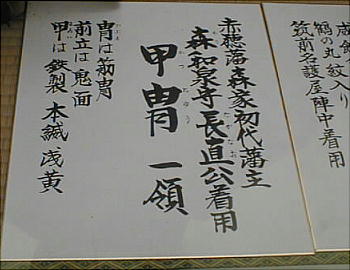 鶴の丸紋入り
筑前名護屋陣中着用
赤穂藩森家初代藩主
森和泉守長直公着用
甲冑一領
冑は筋冑
前立は鬼面
甲は鉄製 本縅浅黄